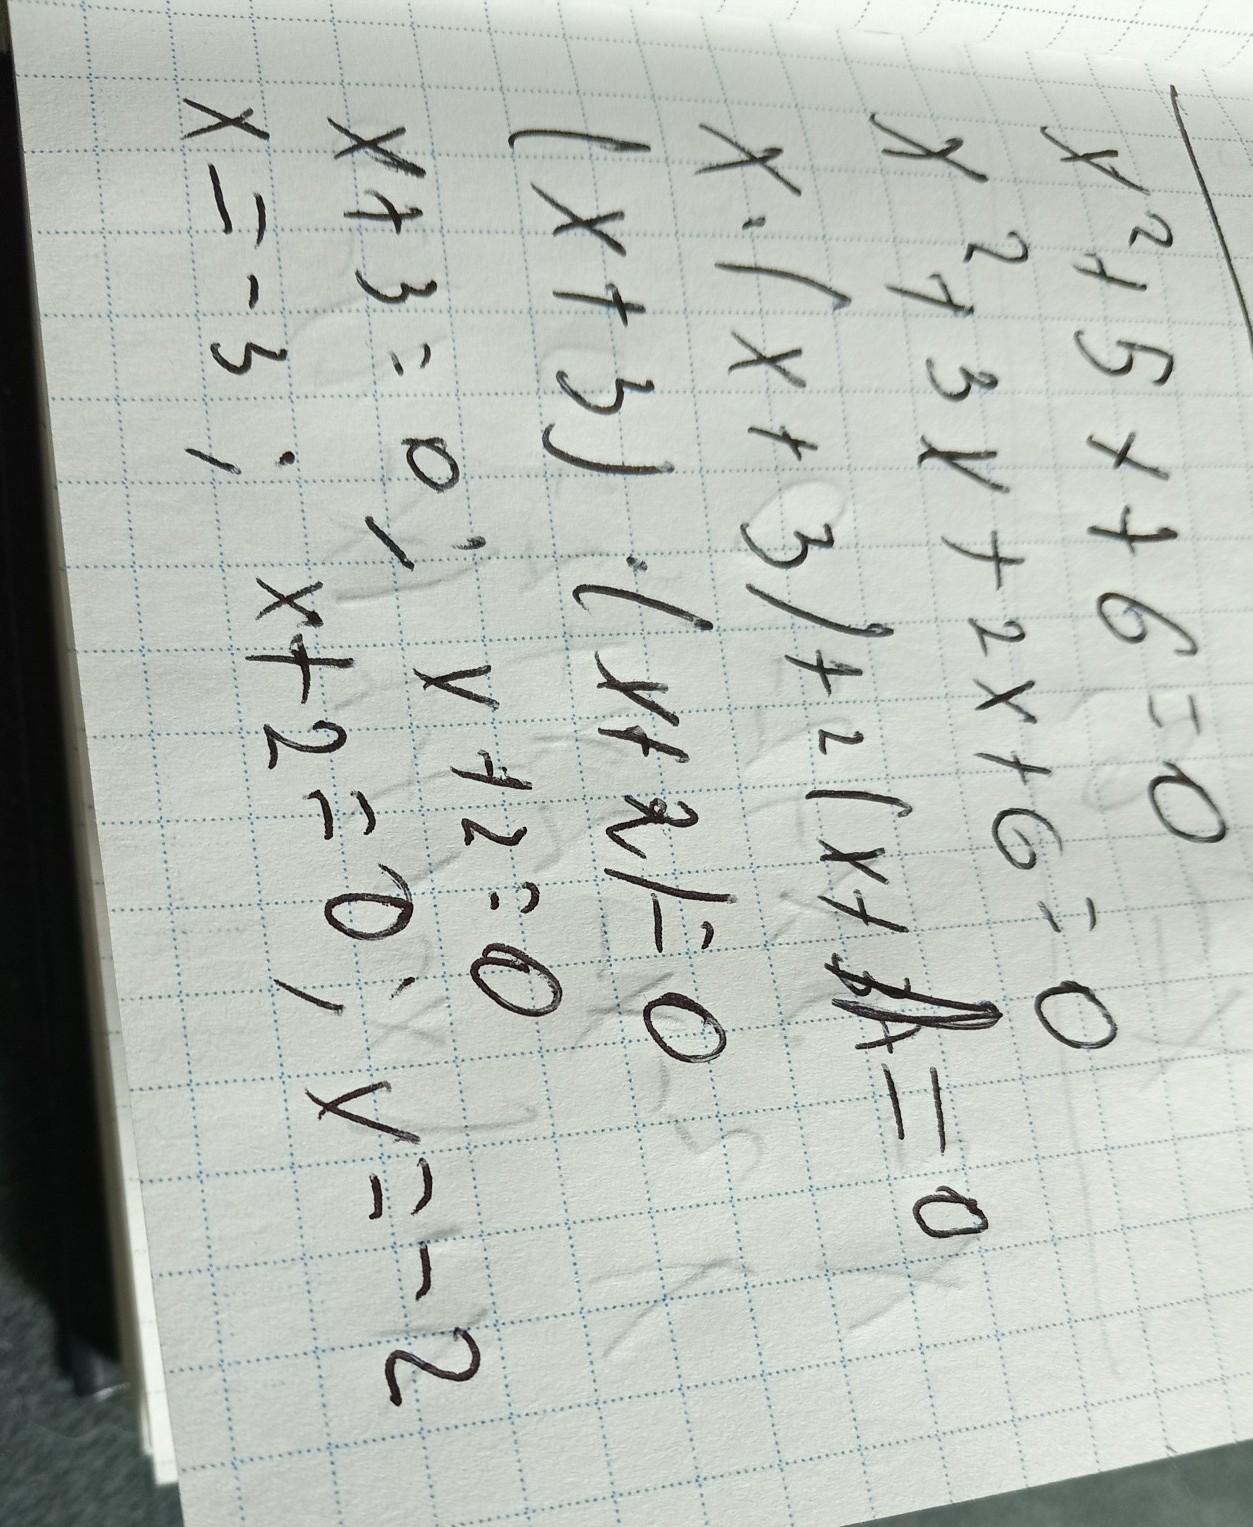 x² + 5x + 6 = 0
x² + 3x + 2x + 6 = 0
x · (x + 3) + 2(x + = 0
(x + 3) · (x + 2) = 0
x + 3 = 0; x + 2 = 0
x = -3; x + 2 = 0; x = -2